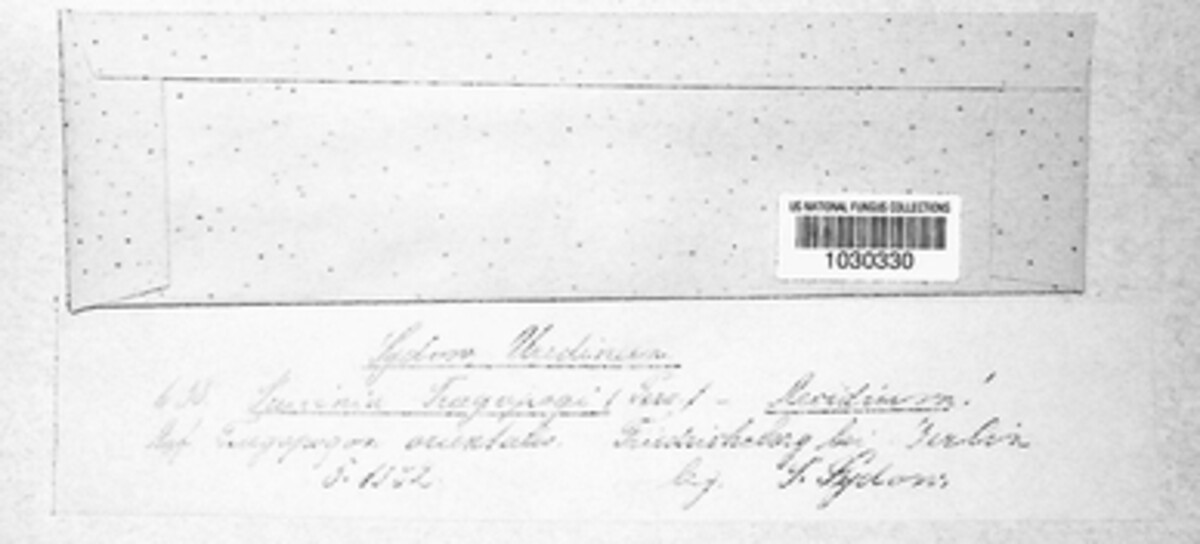 US NATIONAL FUNGUS COLLECTIONS
1030330
Sydow, Uredineen
Puccinia Tragopogi (Pers.) - Aecidium!
Auf Tragopogon orientalis. Friedrichsberg bei Berlin
leg. P. Sydow.